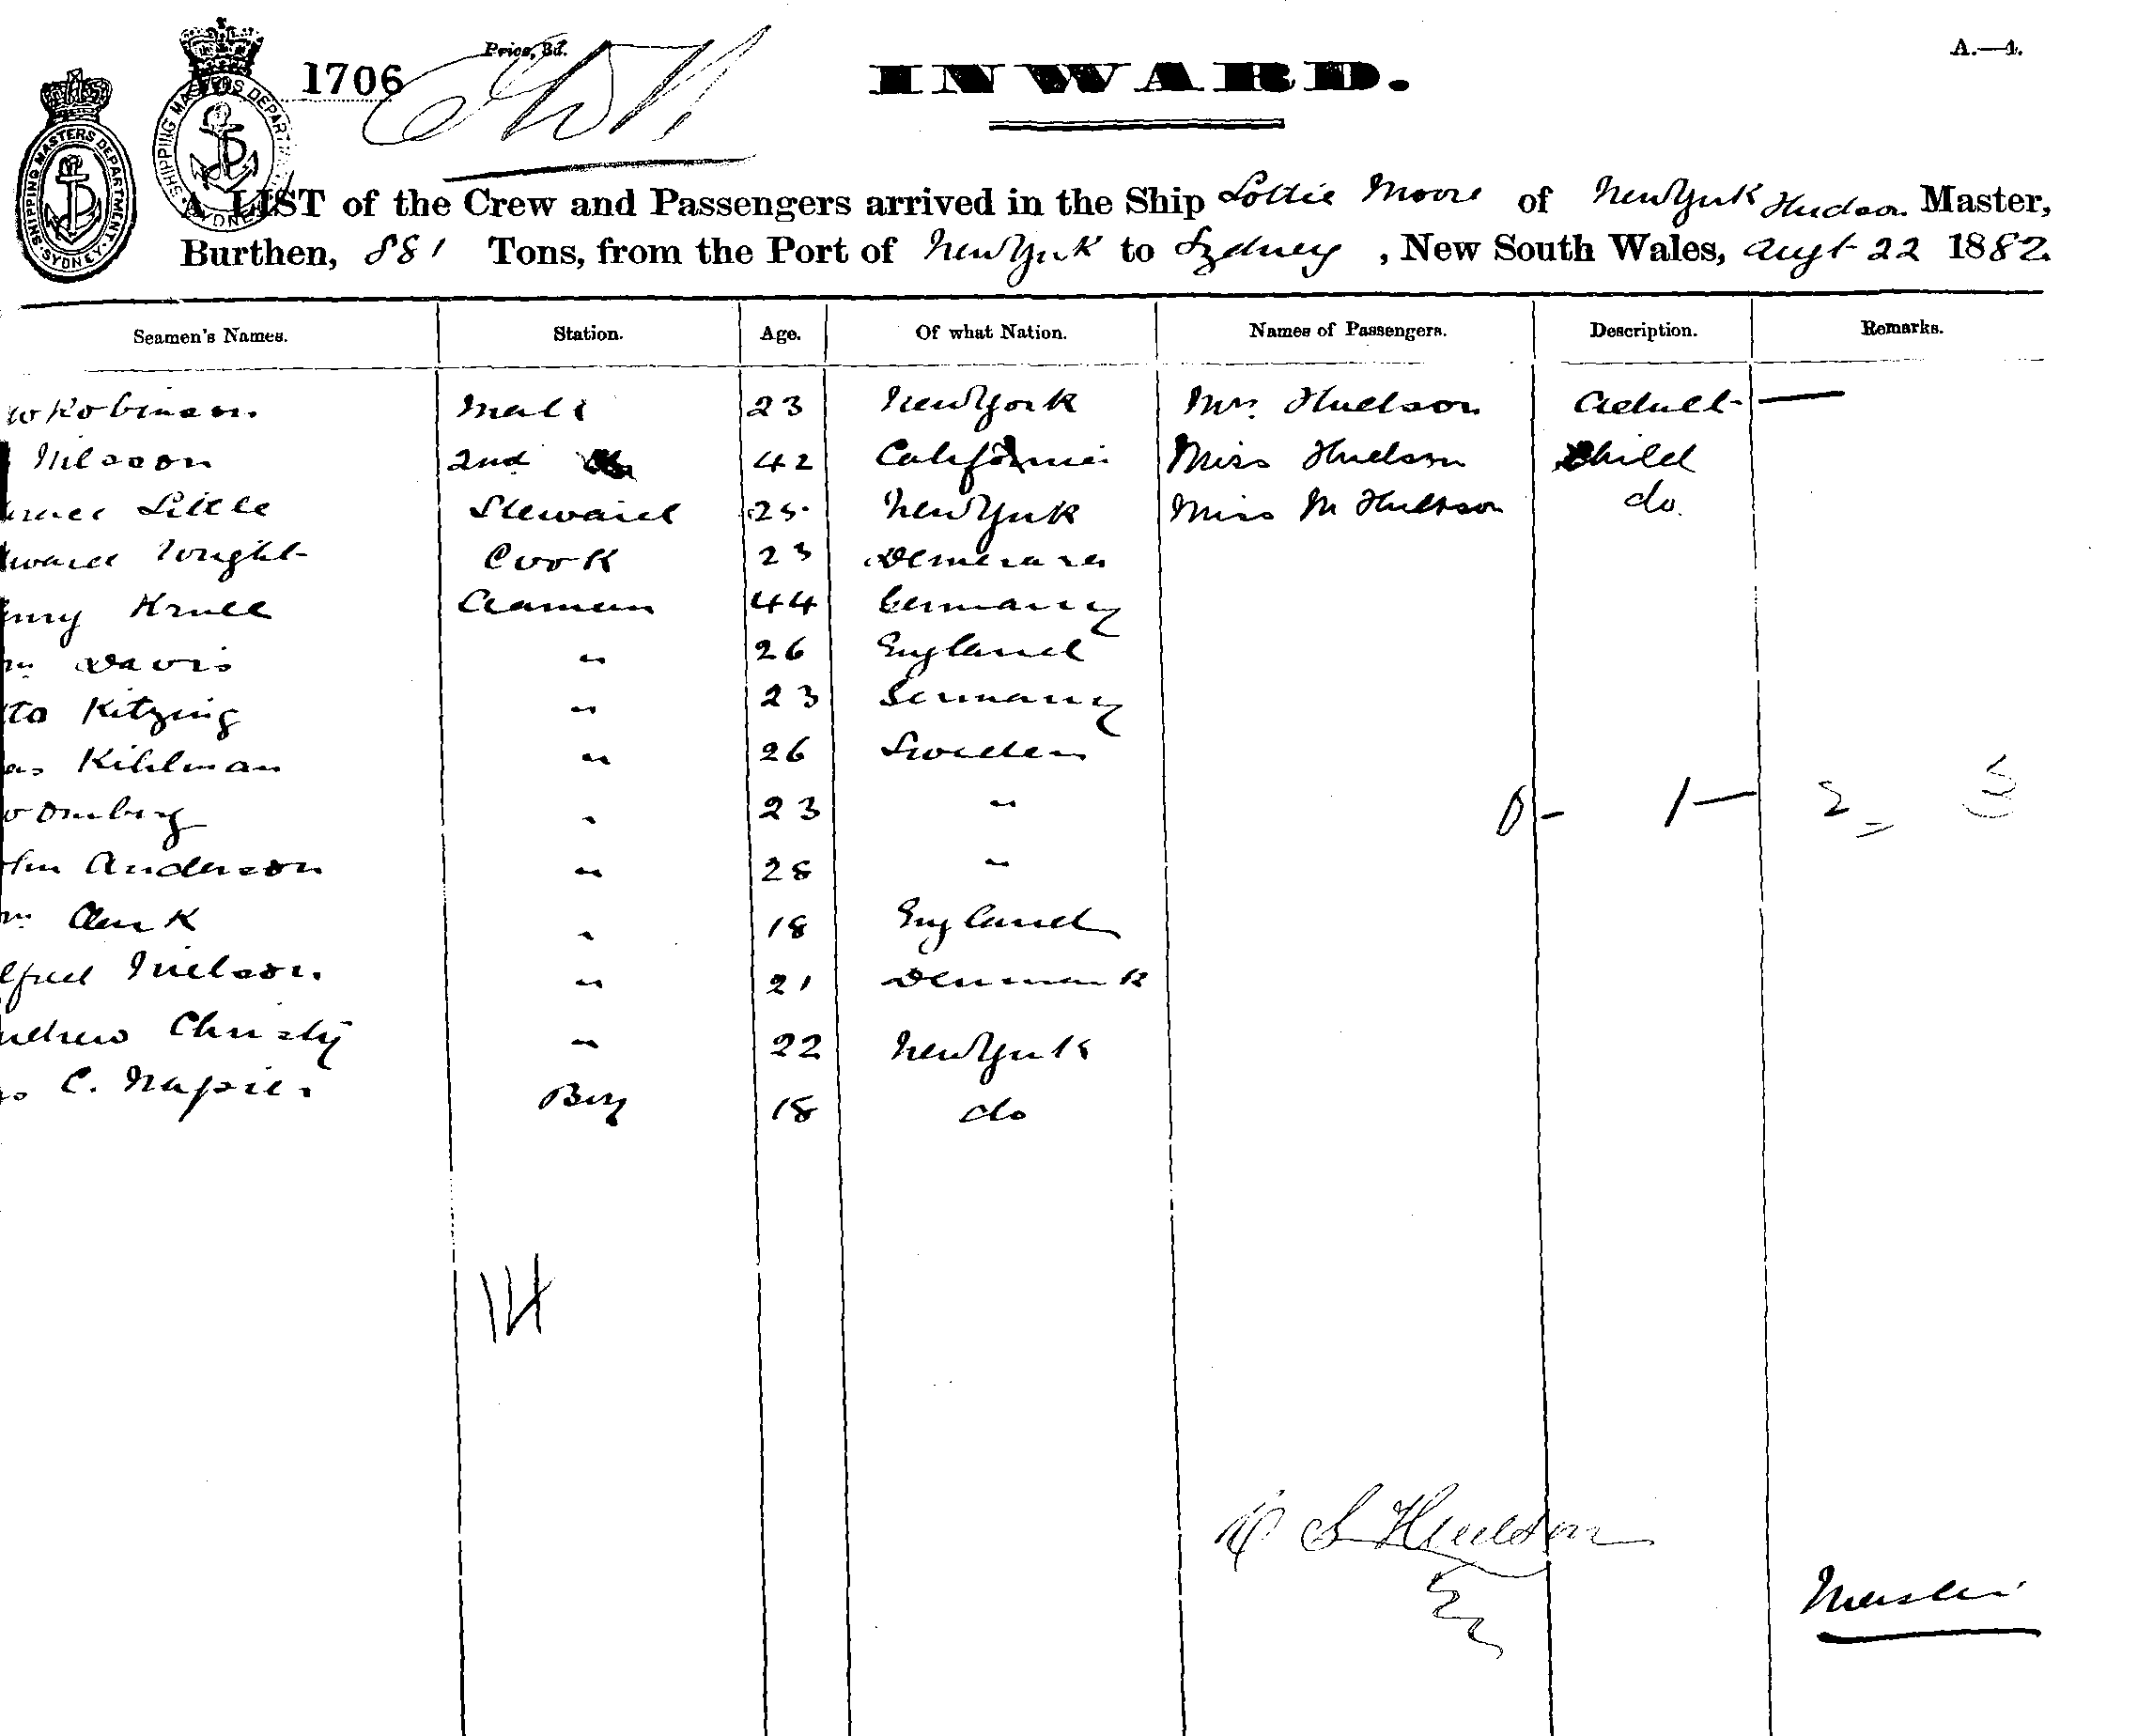 1706
Price, 3d.
INWARD.
A.—4.
SHIPPING MASTERS DEPARTMENT SYDNEY
SHIPPING MASTERS DEPART SYDNEY
A LIST of the Crew and Passengers arrived in the Ship Lottie Moore of New York Hudson Master,
Burthen, 881 Tons, from the Port of New York to Sydney, New South Wales, Augt 22 1882.
Seamen's Names. Station. Age. Of what Nation. Names of Passengers. Description. Remarks.
Robinson Mate 23 New York Mrs. Hudson Adult —
Nilsson 2nd 42 California Miss Hudson Child
Little Steward 25 New York Miss M Hudson do.
Wright Cook 23 Demerara
Krull Seaman 44 Germany
Davis " 26 England
Kitzing " 23 Germany
Kihlman " 26 Sweden
" 23 "
Anderson " 28 "
Clark " 18 England
Nielson " 21 Denmark
Christy " 22 New York
C. Napier Boy 18 do
1 — 2 3
14
S Hudson
Master